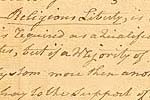 Religious Liberty, is
is required as a Qualifi
but if a Majority of
more then ano
to the support of